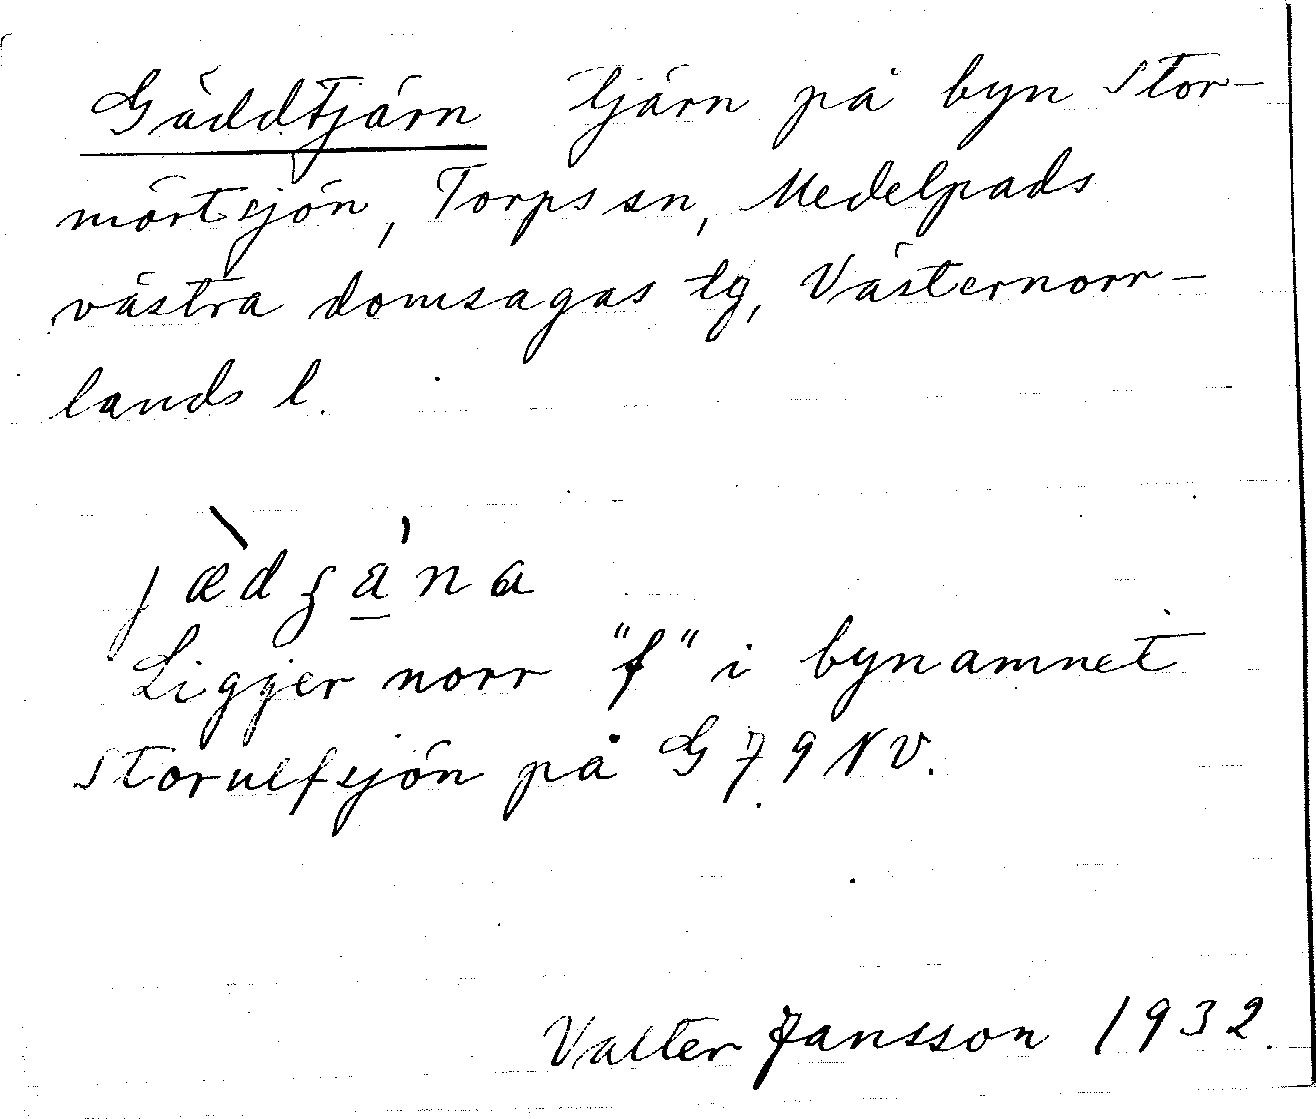 Gäddtjärn tjärn på byn Stor-
mörtsjön, Torps sn, Medelpads
västra domsagas tg, Västernorr-
lands l.
jæ̀dʒá̱na
Ligger norr "f" i bynamnet
Storulfsjön på G 79 NV.
Valter Jansson 1932.